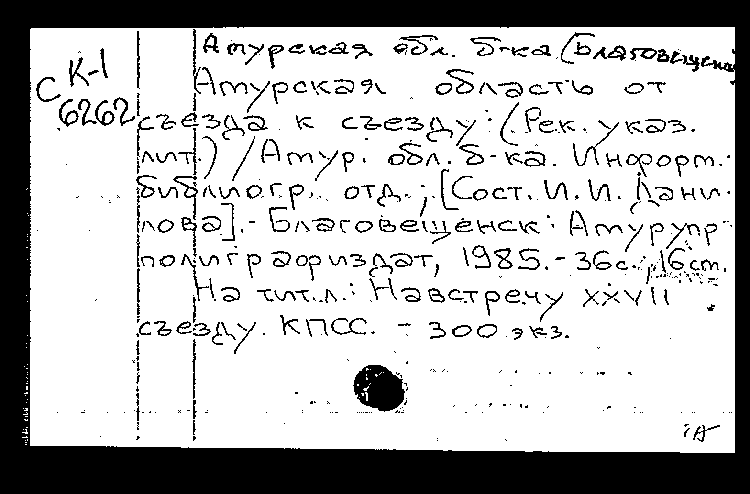 Амурская обл. б-ка (Благовещенск
С К-1
6262
Амурская область от
съезда к съезду: (Рек. указ.
лит.) / Амур. обл. б-ка. Информ.-
библиогр. отд.; [Сост. И. И. Дани-
лова]. - Благовещенск: Амурупр-
полиграфиздат, 1985. - 36 с.;
На тит. л.: Навстречу XXVII
съезду КПСС. - 300 экз.